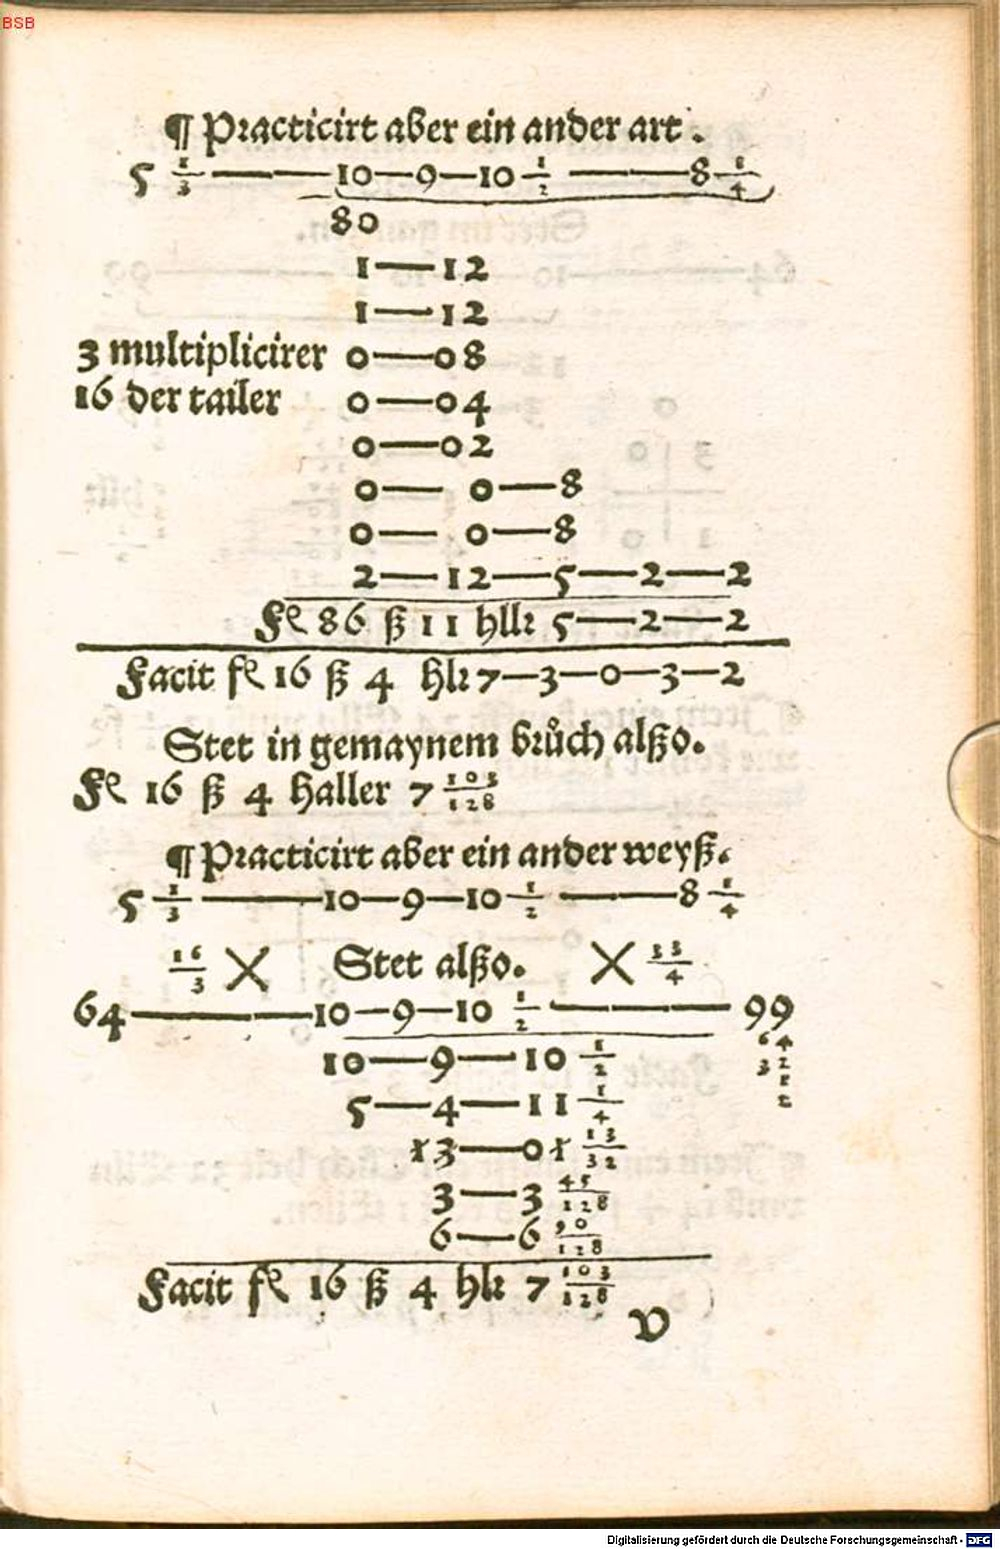 BSB
¶ Practicirt aber ein ander art.
5 1/3 —— 10—9—10 1/2 —— 8 1/4
80
1—12
1—12
3 multiplicirer 0—08
16 der tailer 0—04
0—02
0— 0—8
0— 0—8
2—12—5—2—2
Fl 86 ß 11 hllr 5—2—2
Facit fl 16 ß 4 hlr 7—3—0—3—2
Stet in gemaynem brůch alßo.
Fl 16 ß 4 haller 7 103/128
¶ Practicirt aber ein ander weyß.
5 1/3 —— 10—9—10 1/2 —— 8 1/4
16/3 X Stet alßo. X 33/4
64 —— 10—9—10 1/2 —— 99
10—9—10 1/2 64
5—4—11 1/4 32
13—01 13/32 12
3—3 45/128
6—6 90/128
Facit fl 16 ß 4 hlr 7 103/128
v
Digitalisierung gefördert durch die Deutsche Forschungsgemeinschaft - DFG